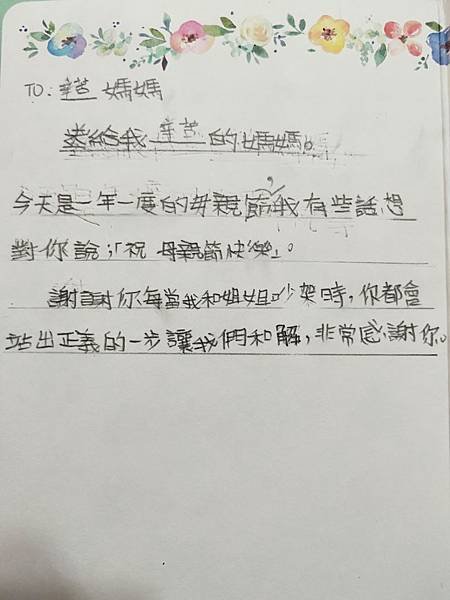 TO:辛苦媽媽
送給我辛苦的媽媽。
今天是一年一度的母親節,我有些話想
對你說;「祝 母親節快樂」。
謝謝你每當我和姐姐吵架時,你都會
站出正義的一步讓我們和解,非常感謝你。